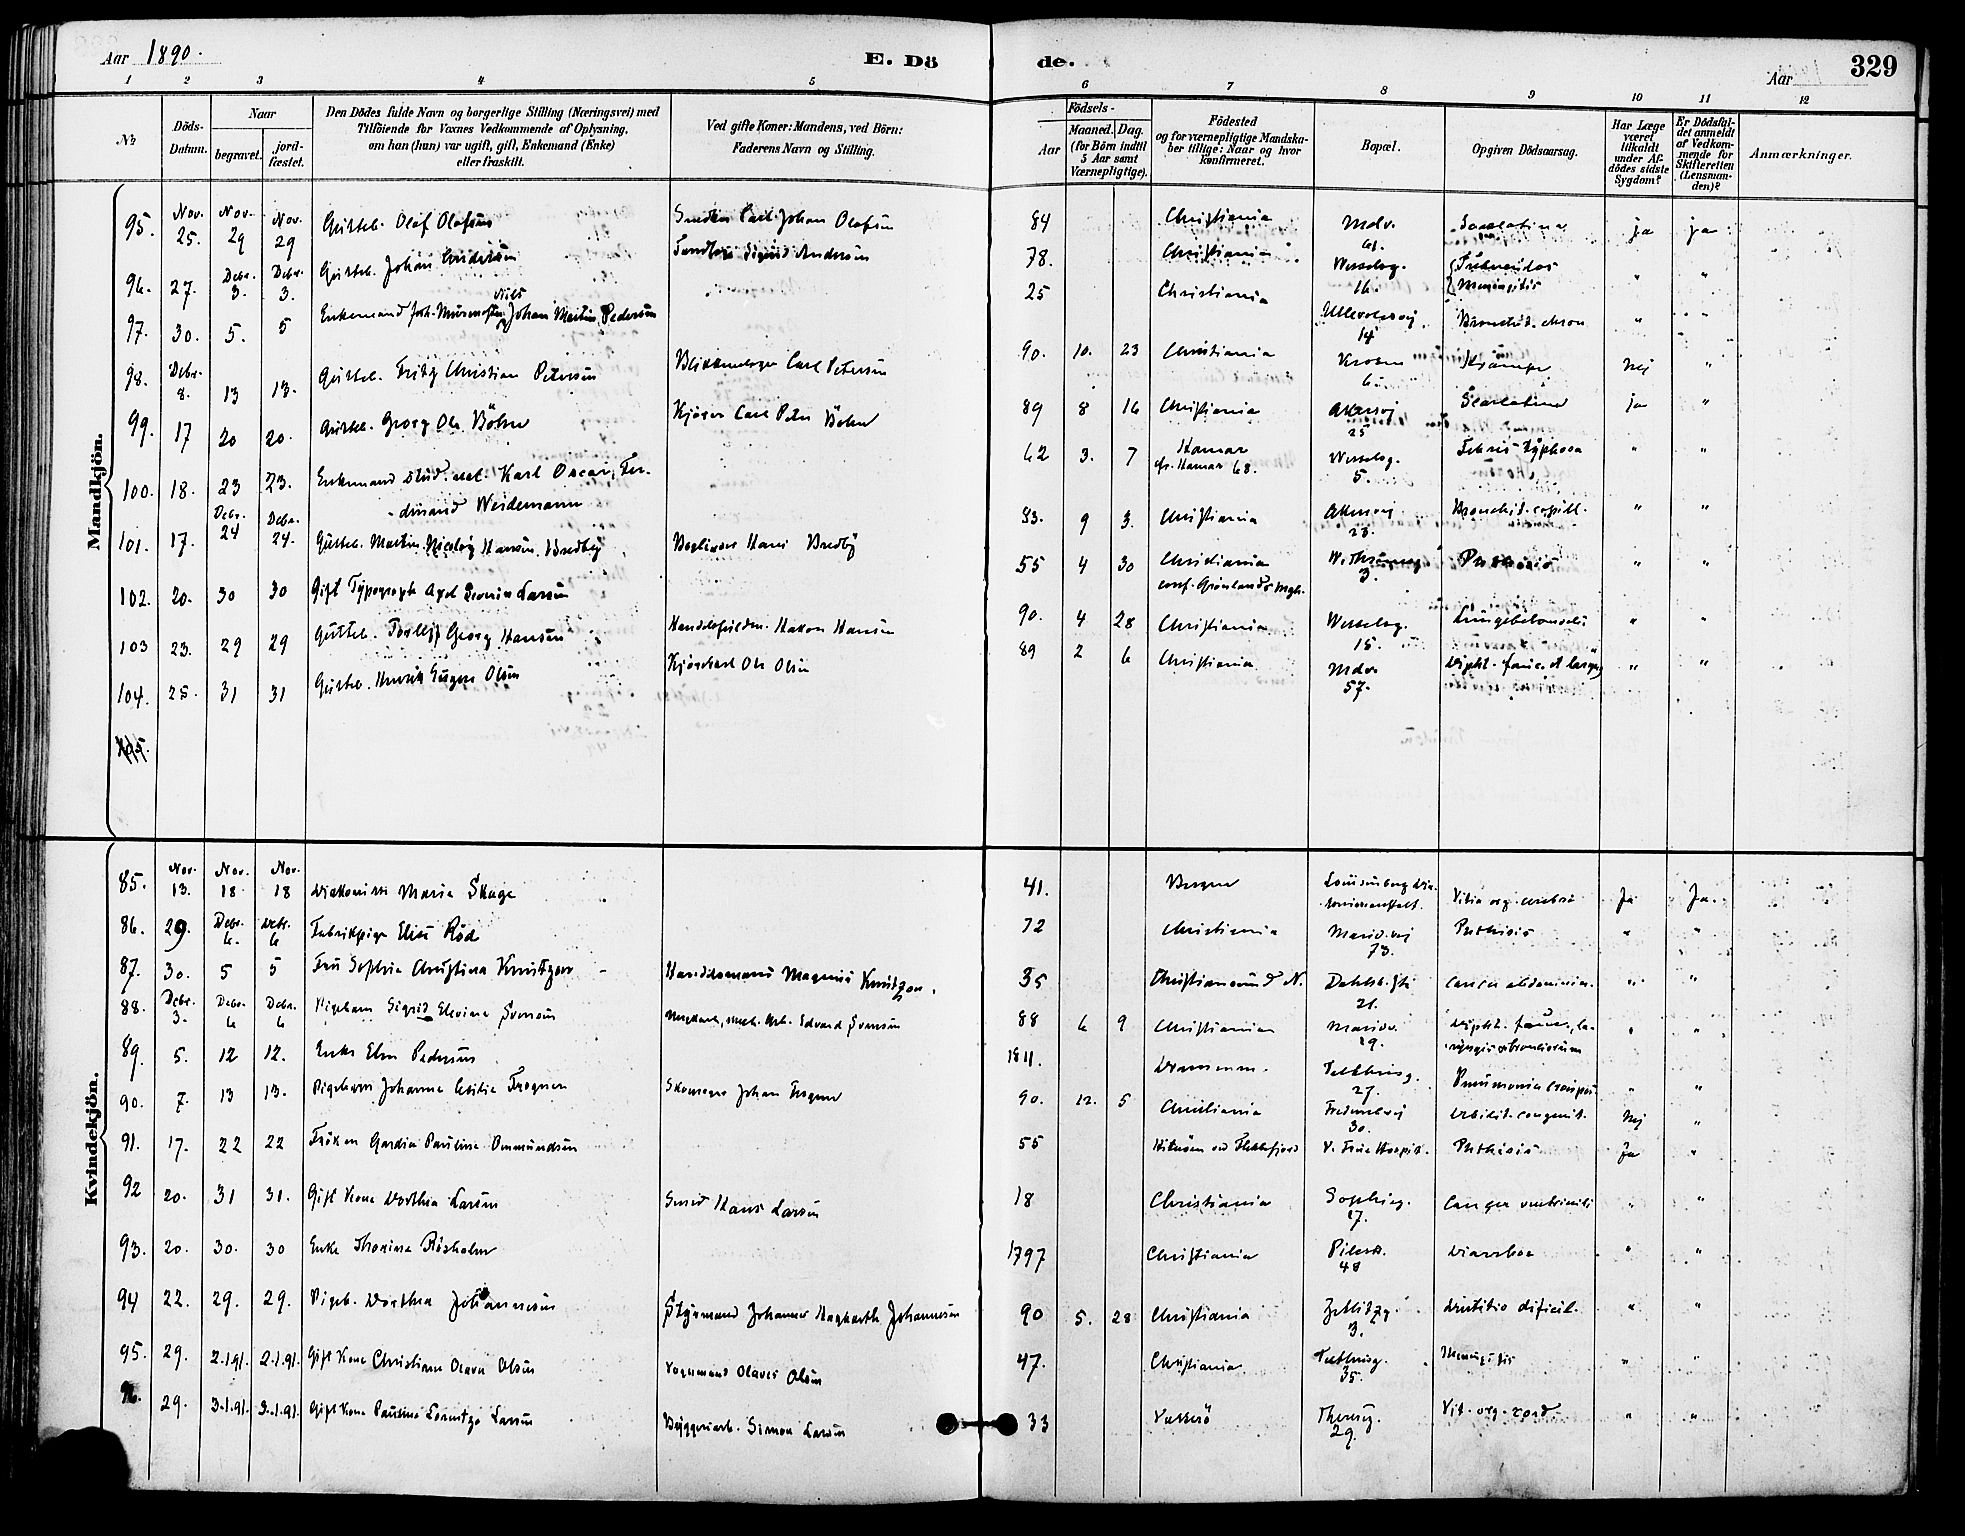 Aar 1890.
E. Dö
de.
Aar
329
1 2 3 4 5 6 7 8 9 10 11 12
№
Döds-Datum.
Naar
begravet.
jordfæstet.
Den Dödes fulde Navn og borgerlige Stilling (Næringsvei) med Tilföiende for Voxnes Vedkommende af Oplysning, om han (hun) var ugift, gift, Enkemand (Enke) eller fraskilt.
Ved gifte Koner: Mandens, ved Börn: Faderens Navn og Stilling.
Födsels-
Aar
Maaned. Dag.
(for Börn indtil 5 Aar samt Værnepligtige).
Födested
og for værnepligtige Mandskaber tillige: Naar og hvor konfirmeret.
Bopæl.
Opgiven Dödsaarsag.
Har Læge været tilkaldt under Afdödes sidste Sygdom?
Er Dödsfaldet anmeldt af Vedkommende for Skifteretten (Lensmanden)?
Anmærkninger.
Mandkjön.
95. Nov. 25. Nov. 29 Nov. 29 Gutteb. Olaf Olafsen Snedker Carl Johan Olafsen 84 Christiania 61. Scarlatina ja ja
96. 27. Debr. 3. Debr. 3. Gutteb. Johan Andersen Sigurd Andersen 78. Christiania Wesselsg. 16. Tuberculos Meningitis " "
97. 30. 5. 5 Enkemand Niels Johan Martin Pedersen 25 Christiania Ullevolsvej 14 Bronchit. chron " "
98. Debr. 8. 13 13. Gutteb. Fritz Christian Petersen Blikkenslager Carl Petersen 90. 10. 23 Christiania 6 Krampe Nej "
99. 17 20 20. Gutteb. Georg Ole Böhn Kjører Carl Peter Böhn 89 8 16 Christiania Akersvej 25 Scarlatina ja "
100. 18. 23 23. Enkemand stud. Karl Oscar Ferdinand Weidemann 62 3. 7 Hamar cf. Hamar 68. Wesselsg. 5. Febris typhosa " "
101. 17. Debr. 24 Debr. 24. Gutteb. Martin Nicolay Hansen Bredby Hans Bredby 83. 9 3. Christiania Akersvej 23. Bronchit. capill. " "
102. 20. 30 30 Gift Typograph Axel Larsen 55 4 30 Christiania conf. Grönlands Mgh. 3. Phthisis " "
103 23. 29 29 Gutteb. Georg Hansen Hakon Hansen 90. 4 28 Christiania Wesselsg. 15. Lungebetændelse " "
104. 25. 31 31 Gutteb. Henrik Eugen Olsen Kjørekarl Ole Olsen 89 2 6 Christiania 57. Dipht. fauc. et laryng " "
105.
Kvindekjön.
85. Nov. 13. Nov. 18 Nov. 18 Diakonisse Maria Skage 41. Bergen Vitia org. cerebri Ja Ja.
86. 29. Debr. 6. Debr. 6 Fabrikpige Elise Röd 72 Christiania Maridvej 73. Phthisis " "
87. 30. 5 5 Fru Sophia Christina Knutzon Handelsmand Magnus Knutzon. 35 Christianssund N. 21. cancer abdominis. " "
88. Debr. 3. Debr. 6 Debr. 6 Pigebarn Sigrid Elevine Svensen Edvard Svensen 88 6 9 Christiania Maridv. 19. Dipht. fauc., laryngis " "
89. 5. 12 12. Enke Elen Pedersen 1811. Drammen. 27. Pneumonia crouposa " "
90. 7. 13 13. Pigebarn Johanne Cecilie Frogner Skomager Johan Frogner 90. 12. 5 Christiania Fredensborgvej 30. Debilit. congenit. Nej "
91. 17. 22 22 Fröken Gardia Pauline Ommundsen 55 Flekkefjord V. Frue Hospit. Phthisis Ja "
92 20. 31 31. Gift Kone Dorthea Larsen Smed Hans Larsen 18 Christiania Sophieg. 17. Cancer ventriculi " "
93. 20. 30. 30 Enke Thorina Rösholm 1797 Christiania Pilestr. 48 Diarrhoe " "
94 22. 29. 29. Pigeb. Dorthea Johannesen Styrmand Johannes Johannesen 90 5. 28 Christiania Zetlitzg. 3. Dentitio dificil. " "
95. 29. 2.1.91. 2.1.91. Gift Kone Christiane Olava Olsen Vognmand Olaves Olsen 47. Christiania 35. Meningitis " "
29. 3.1.91. 3.1.91. Gift Kone Pauline Lorentze Larsen Byggeriarb. Simon Larsen 33 29. Vit. org. cord. " "